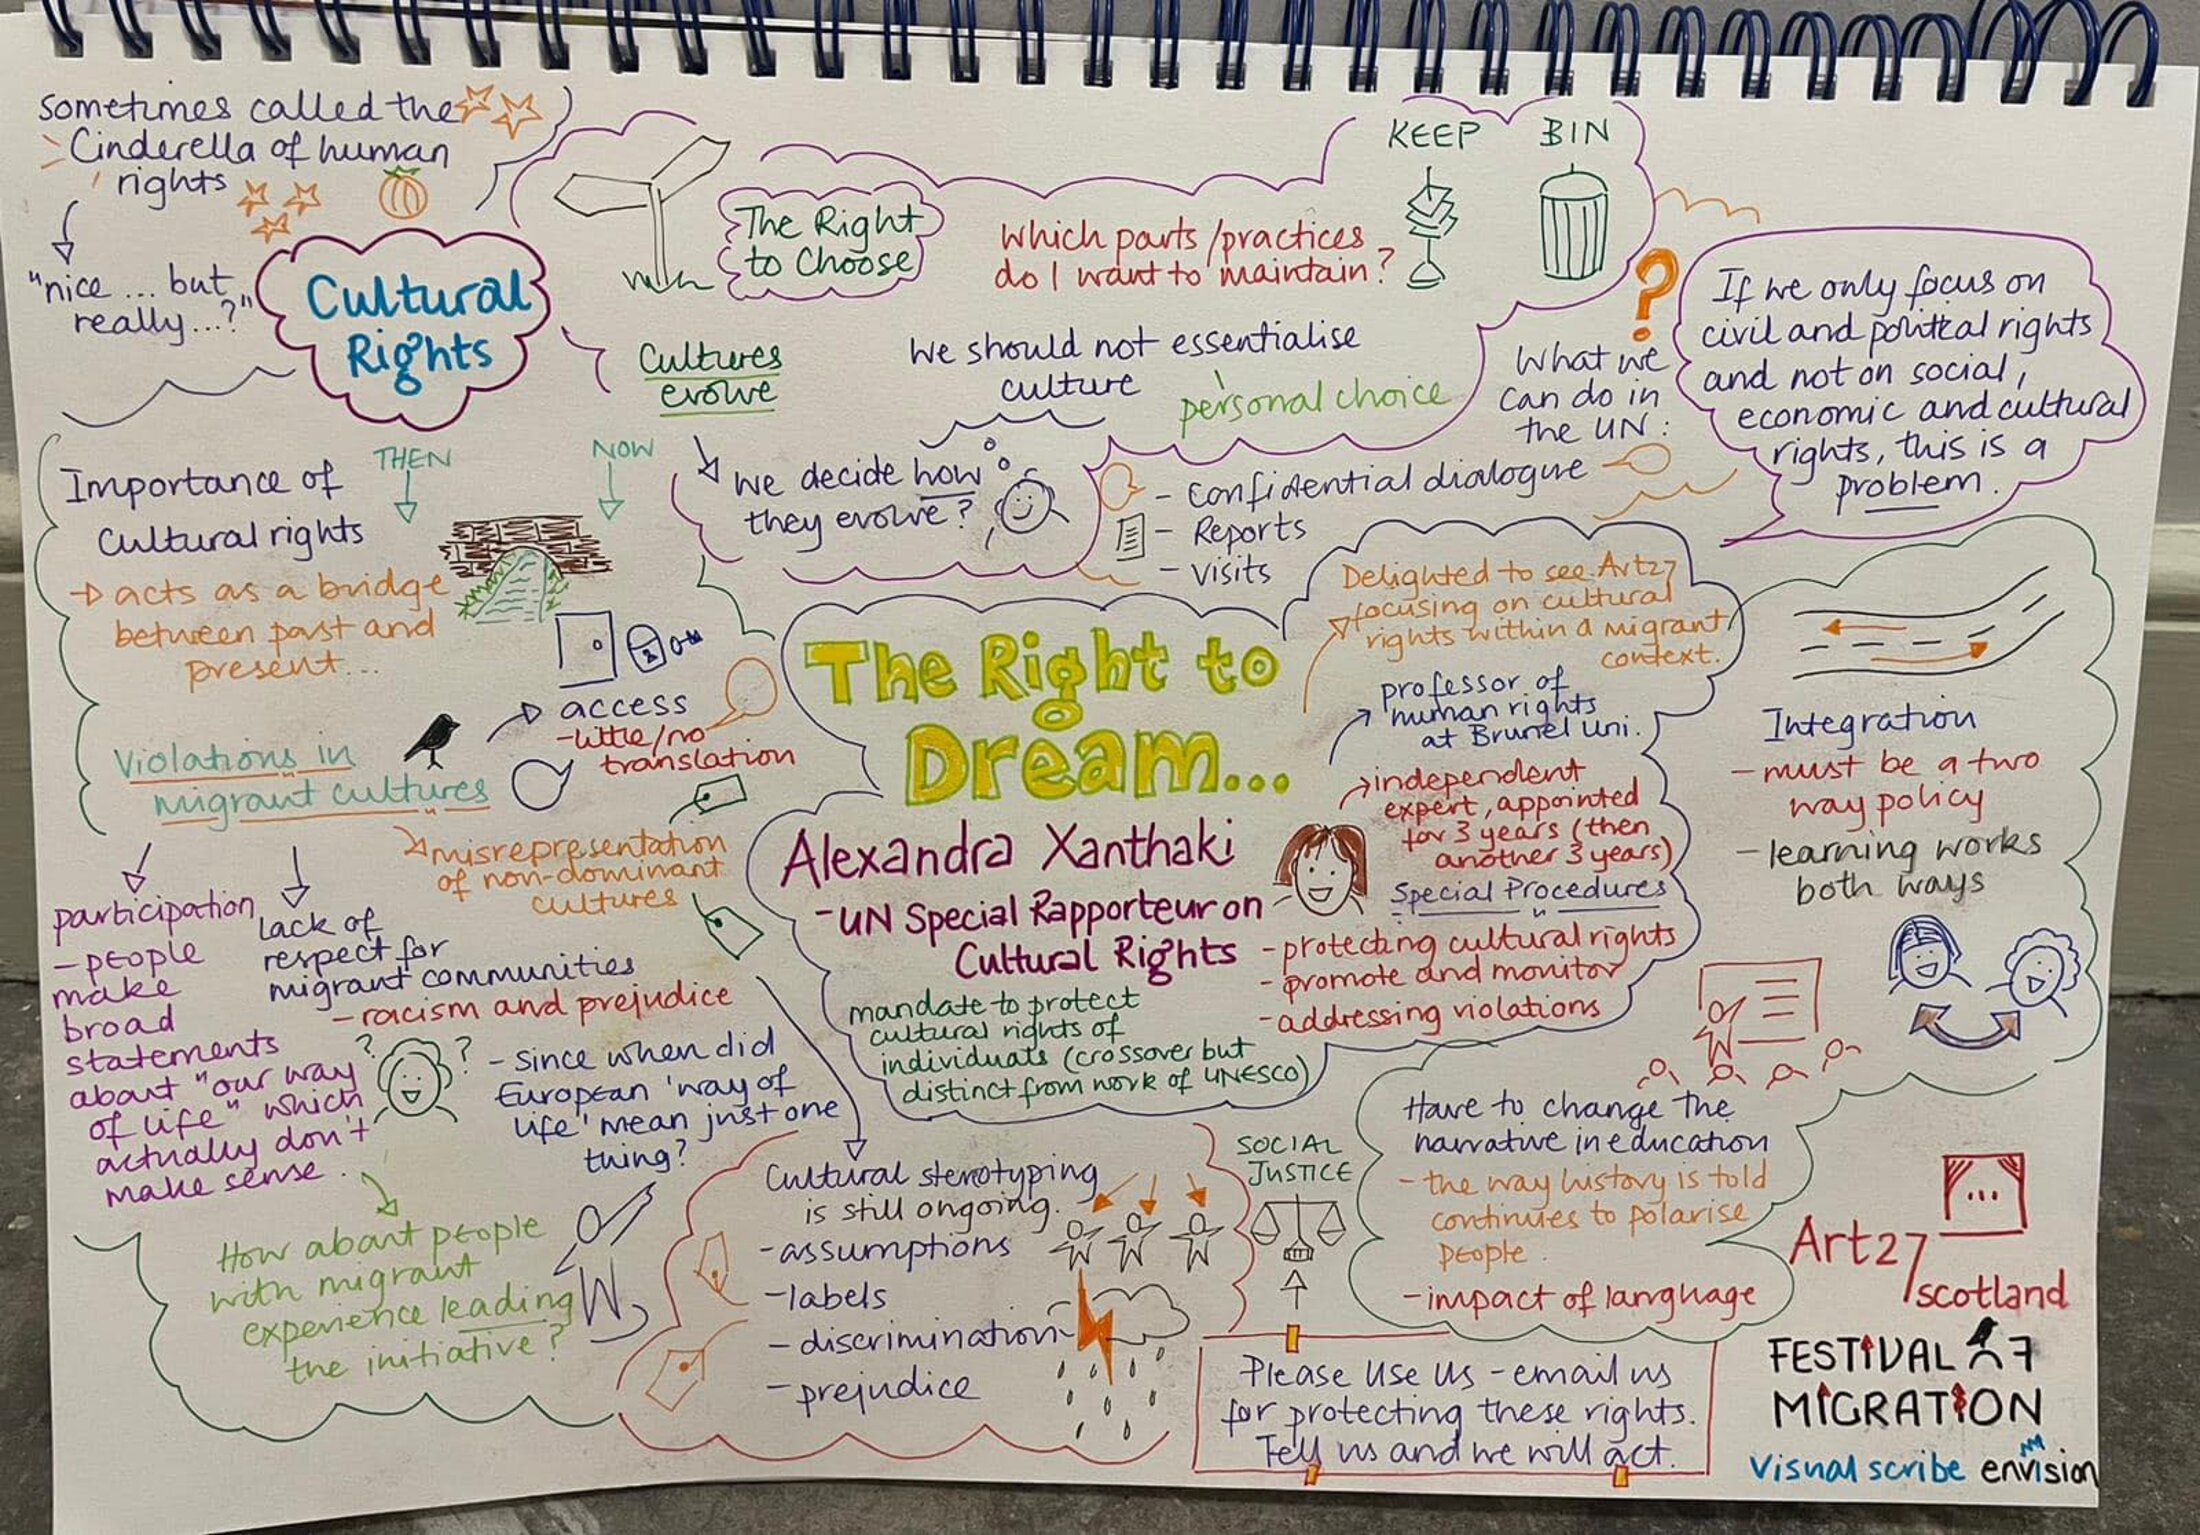 sometimes called the
Cinderella of human
rights
"nice ... but
really...?"
Cultural
Rights
The Right
to Choose
Which parts/practices
do I want to maintain?
KEEP
BIN
Cultures
evolve
We should not essentialise
culture
personal choice
we decide how
they evolve?
?
What we
can do in
the UN:
- Confidential dialogue
- Reports
- visits
If we only focus on
civil and political rights
and not on social,
economic and cultural
rights, this is a
problem.
Importance of
Cultural rights
THEN
NOW
acts as a bridge
between past and
present...
Violations in
migrant cultures
access
- little/no
translation
misrepresentation
of non-dominant
cultures
participation
- people
make
broad
statements
about "our way
of life" which
actually don't
make sense.
lack of
respect for
migrant communities
- racism and prejudice
? ?
- since when did
European 'way of
life' mean just one
thing?
How about people
with migrant
experience leading
the initiative?
The Right to
Dream...
Alexandra Xanthaki
- UN Special Rapporteur on
Cultural Rights
mandate to protect
cultural rights of
individuals (crossover but
distinct from work of UNESCO)
Delighted to see Art27
focusing on cultural
rights within a migrant
context.
professor of
human rights
at Brunel Uni.
independent
expert, appointed
for 3 years (then
another 3 years)
Special Procedures
- protecting cultural rights
- promote and monitor
- addressing violations
Integration
- must be a two
way policy
- learning works
both ways
Cultural sterotyping
is still ongoing.
- assumptions
- labels
- discrimination
- prejudice
SOCIAL
JUSTICE
Have to change the
narrative in education
- the way history is told
continues to polarise
people.
- impact of language
Please Use Us - email us
for protecting these rights.
Tell us and we will act.
...
Art27
scotland
FESTIVAL
MIGRATION
Visual scribe envision